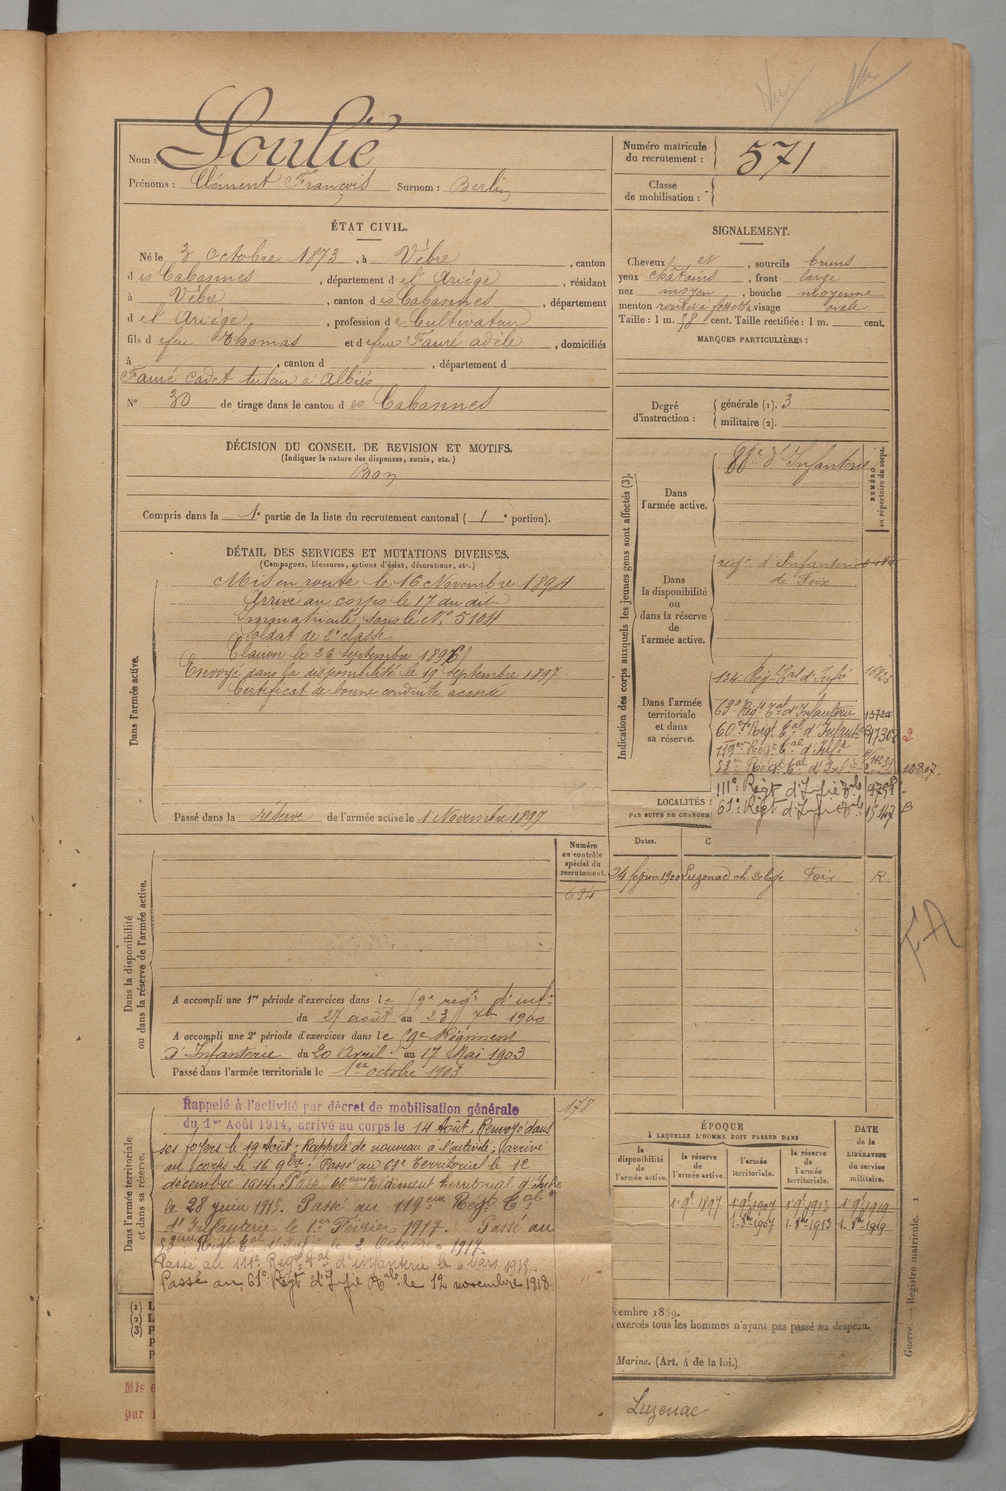 Nom : Soulié
Prénoms : Clément François Surnom : Berlin
Numéro matricule du recrutement : 571
Classe de mobilisation :
ÉTAT CIVIL.
Né le 3 octobre 1873, à Vèbre, canton
des Cabannes, département de l'Ariége, résidant
à Vèbre, canton des Cabannes, département
de l'Ariège, profession de Cultivateur
fils de feu Thomas et de feue Faure adèle, domiciliés
à , canton d , département d
Faure cadet tuteur à Albiès
N° 30 de tirage dans le canton des Cabannes
SIGNALEMENT.
Cheveux et , sourcils bruns
yeux chatains , front large
nez moyen , bouche moyenne
menton rond à fossette, visage ovale
Taille : 1 m. 58 cent. Taille rectifiée : 1 m. cent.
MARQUES PARTICULIÈRES :
Degré d'instruction : générale (1). 3
militaire (2).
DÉCISION DU CONSEIL DE REVISION ET MOTIFS.
(Indiquer la nature des dispenses, sursis, etc.)
Bon
Compris dans la 1e partie de la liste du recrutement cantonal ( 1 e portion).
DÉTAIL DES SERVICES ET MUTATIONS DIVERSES.
(Campagnes, blessures, actions d'éclat, décorations, etc.)
Dans l'armée active.
Mis en route le 16 Novembre 1894
Arrivé au corps le 17 du dit
immatriculé sous le N° 5104
Soldat de 2e classe
Clairon le 26 septembre 1896
Envoyé dans la disponibilité le 19 septembre 1897
Certificat de bonne conduite accordé
Passé dans la réserve de l'armée active le 1 Novembre 1897
Indication des corps auxquels les jeunes gens sont affectés (3).
NUMÉRO au répertoire du corps.
Dans l'armée active.
88e d'Infanterie
Dans la disponibilité ou dans la réserve de l'armée active.
regt d'Infanterie
de Foix
Dans l'armée territoriale et dans sa réserve.
134e Régt tal d'Infie
63e Regt tal d'Infanterie
60e Regt tal d'Infanterie
119e Regt tal d'Infie
53e Regt tal d'Infie
111e Régt d'Infie tale
61e Régt d'Infie tale
LOCALITÉS
PAR SUITE DE CHANGEM
Dates.
Luzenac Foix R
Dans la disponibilité ou dans la réserve de l'armée active.
Numéro au contrôle spécial du recrutement.
634
A accompli une 1re période d'exercices dans le 59e regt d'infie
du 27 août au 23 7bre 1900
A accompli une 2e période d'exercices dans le 59e Régiment
d'Infanterie du 20 Avril au 17 Mai 1903
Passé dans l'armée territoriale le 1er octobre 1903
178
Dans l'armée territoriale et dans sa réserve.
Rappelé à l'activité par décret de mobilisation générale
du 1er Août 1914, arrivé au corps le 14 Août. Renvoyé dans
ses foyers le 19 Août. Rappelé de nouveau à l'activité; arrivé
au corps le 16 9bre. Passé au 63e Territorial le 1e
décembre 1914. Passé 60eme Régiment territorial d'Infie
le 28 juin 1915. Passé au 119eme Regt Tal
d'Infanterie le 1er Février 1917. Passé au
53eme Regt tal d'Infie le 2 Octobre 1917.
Passé au 111e Regt tal d'infanterie le 6 Mars 1918.
Passé au 61e Régt d'Infie tale le 12 novembre 1918
ÉPOQUE
À LAQUELLE L'HOMME DOIT PASSER DANS
la disponibilité de l'armée active.
la réserve de l'armée active.
l'armée territoriale.
la réserve de l'armée territoriale.
DATE de la LIBÉRATION du service militaire.
1 9bre 1897
1 9bre 1907 1 9bre 1913 1 9bre 1919
1 8bre 1907 1 8bre 1913 1 8bre 1919
(1)
(2)
(3)
cembre 1889.
exercés tous les hommes n'ayant pas passé au drapeau.
Marine. (Art. 4 de la loi.)
Guerre. — Registre matricule. 1
Mis
par
Luzenac